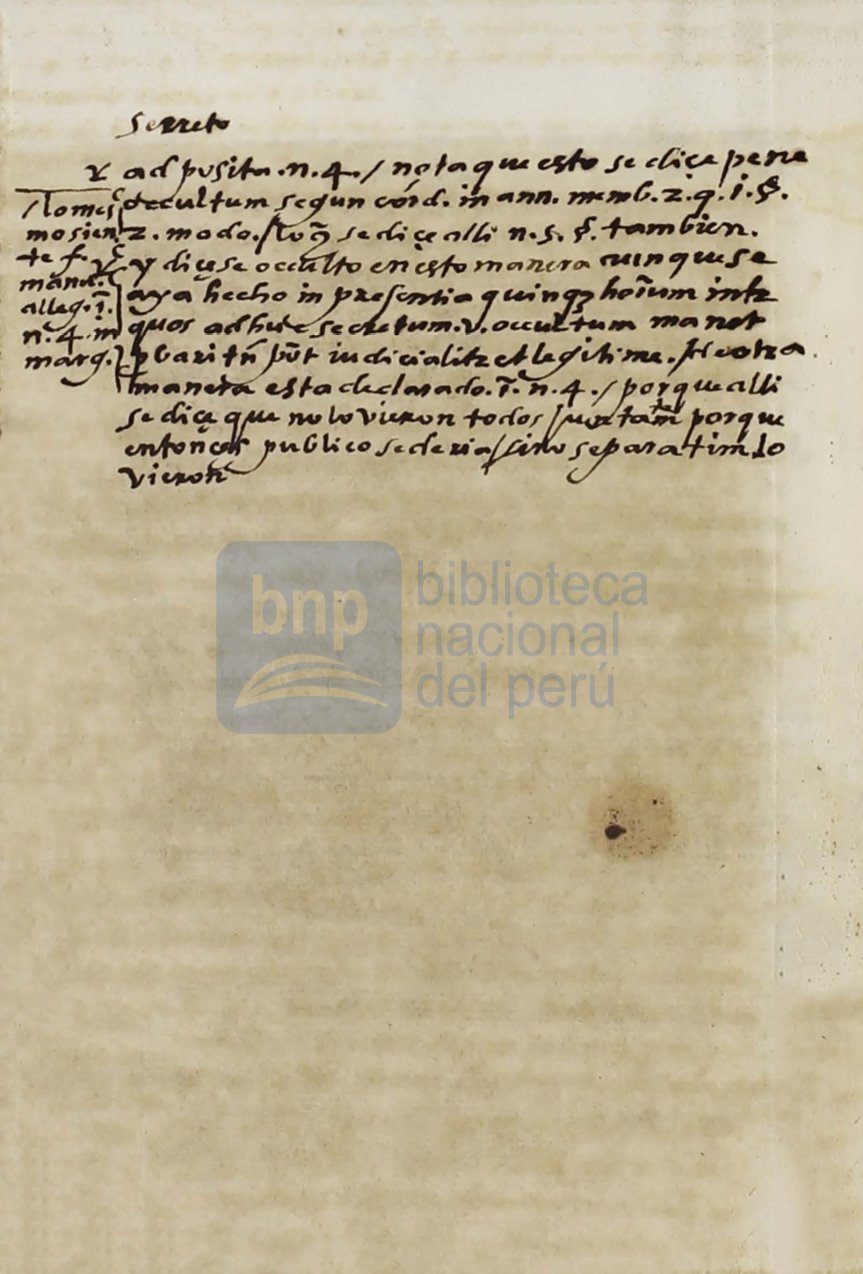 Serreto
r ad posita .n.4. / nota que esto se diçe pene
occultum segun córd. in ann. memb. 2. q. i. §.
2. modo. / lo q̃ se diçe alli n. 5. §. tambien.
y diçese occulto en esto manera aunque se
aya hecho in presentia quinq3 hoĩum inter
quos adhuc secretum .v. occultum manet
pbari tñ põt iudicialiter et legitime. / de otra
manera esta declarado. ĩ. n. 4. / porque alli
se diçe que no lo vieron todos juntam porque
entonçes publico se deria / sino separatim lo
vieron
/ lo mes
mosien
te f.
manu.
alleg. ĩ.
n. 4. in
marg.
bnp
biblioteca
nacional
del perú